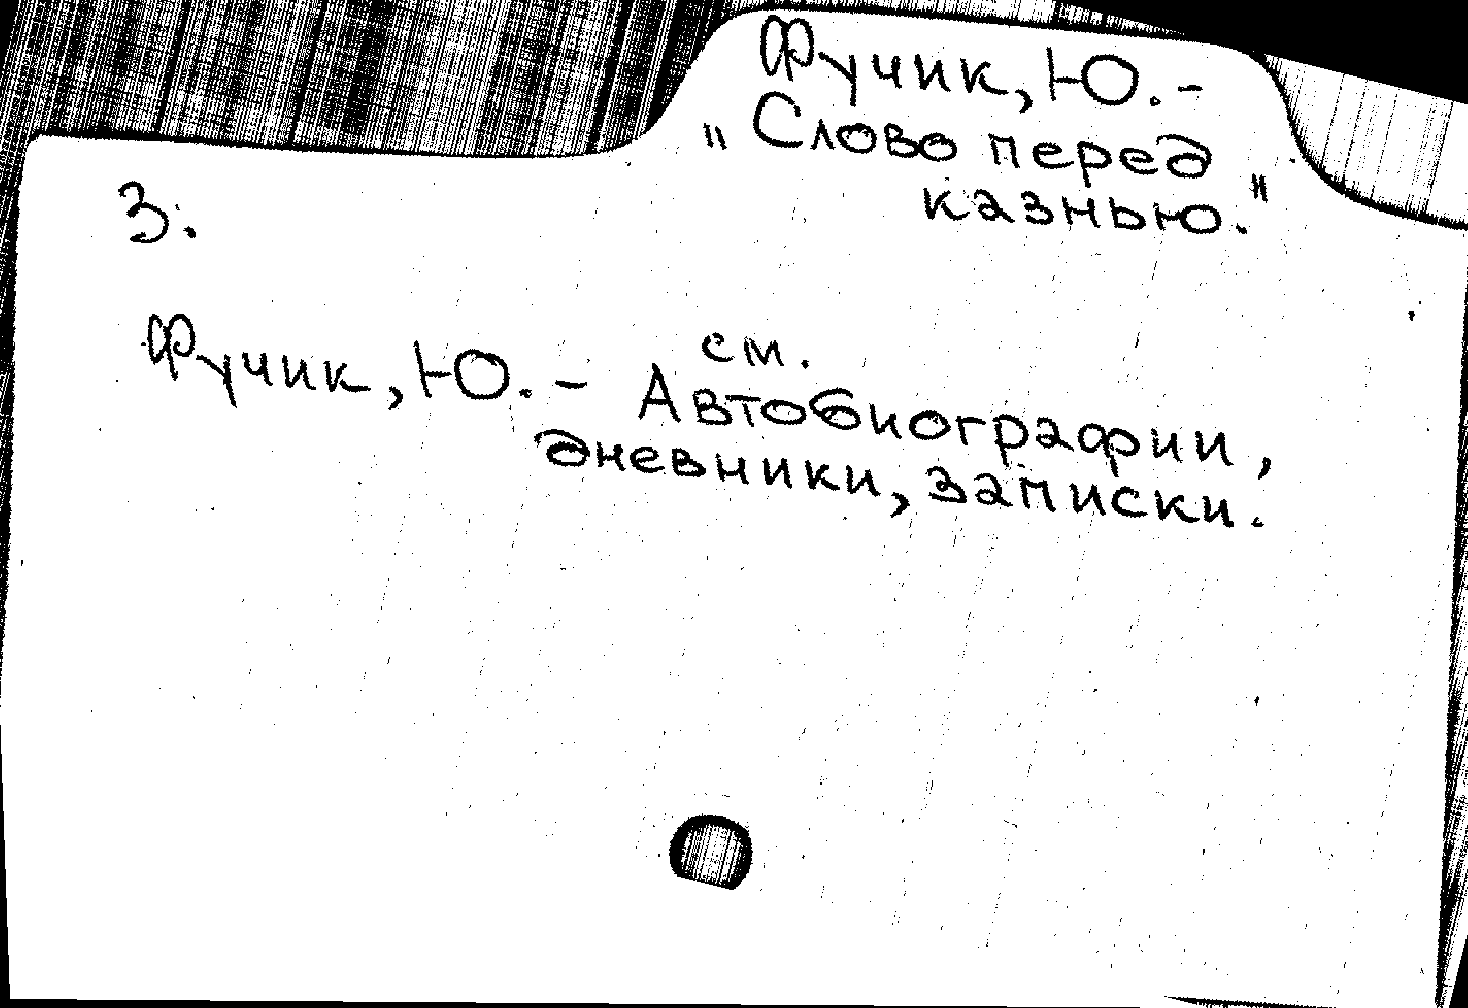 Фучик, Ю. -
"Слово перед
казнью."
3.
Фучик, Ю. - см.
Автобиографии,
дневники, записки.